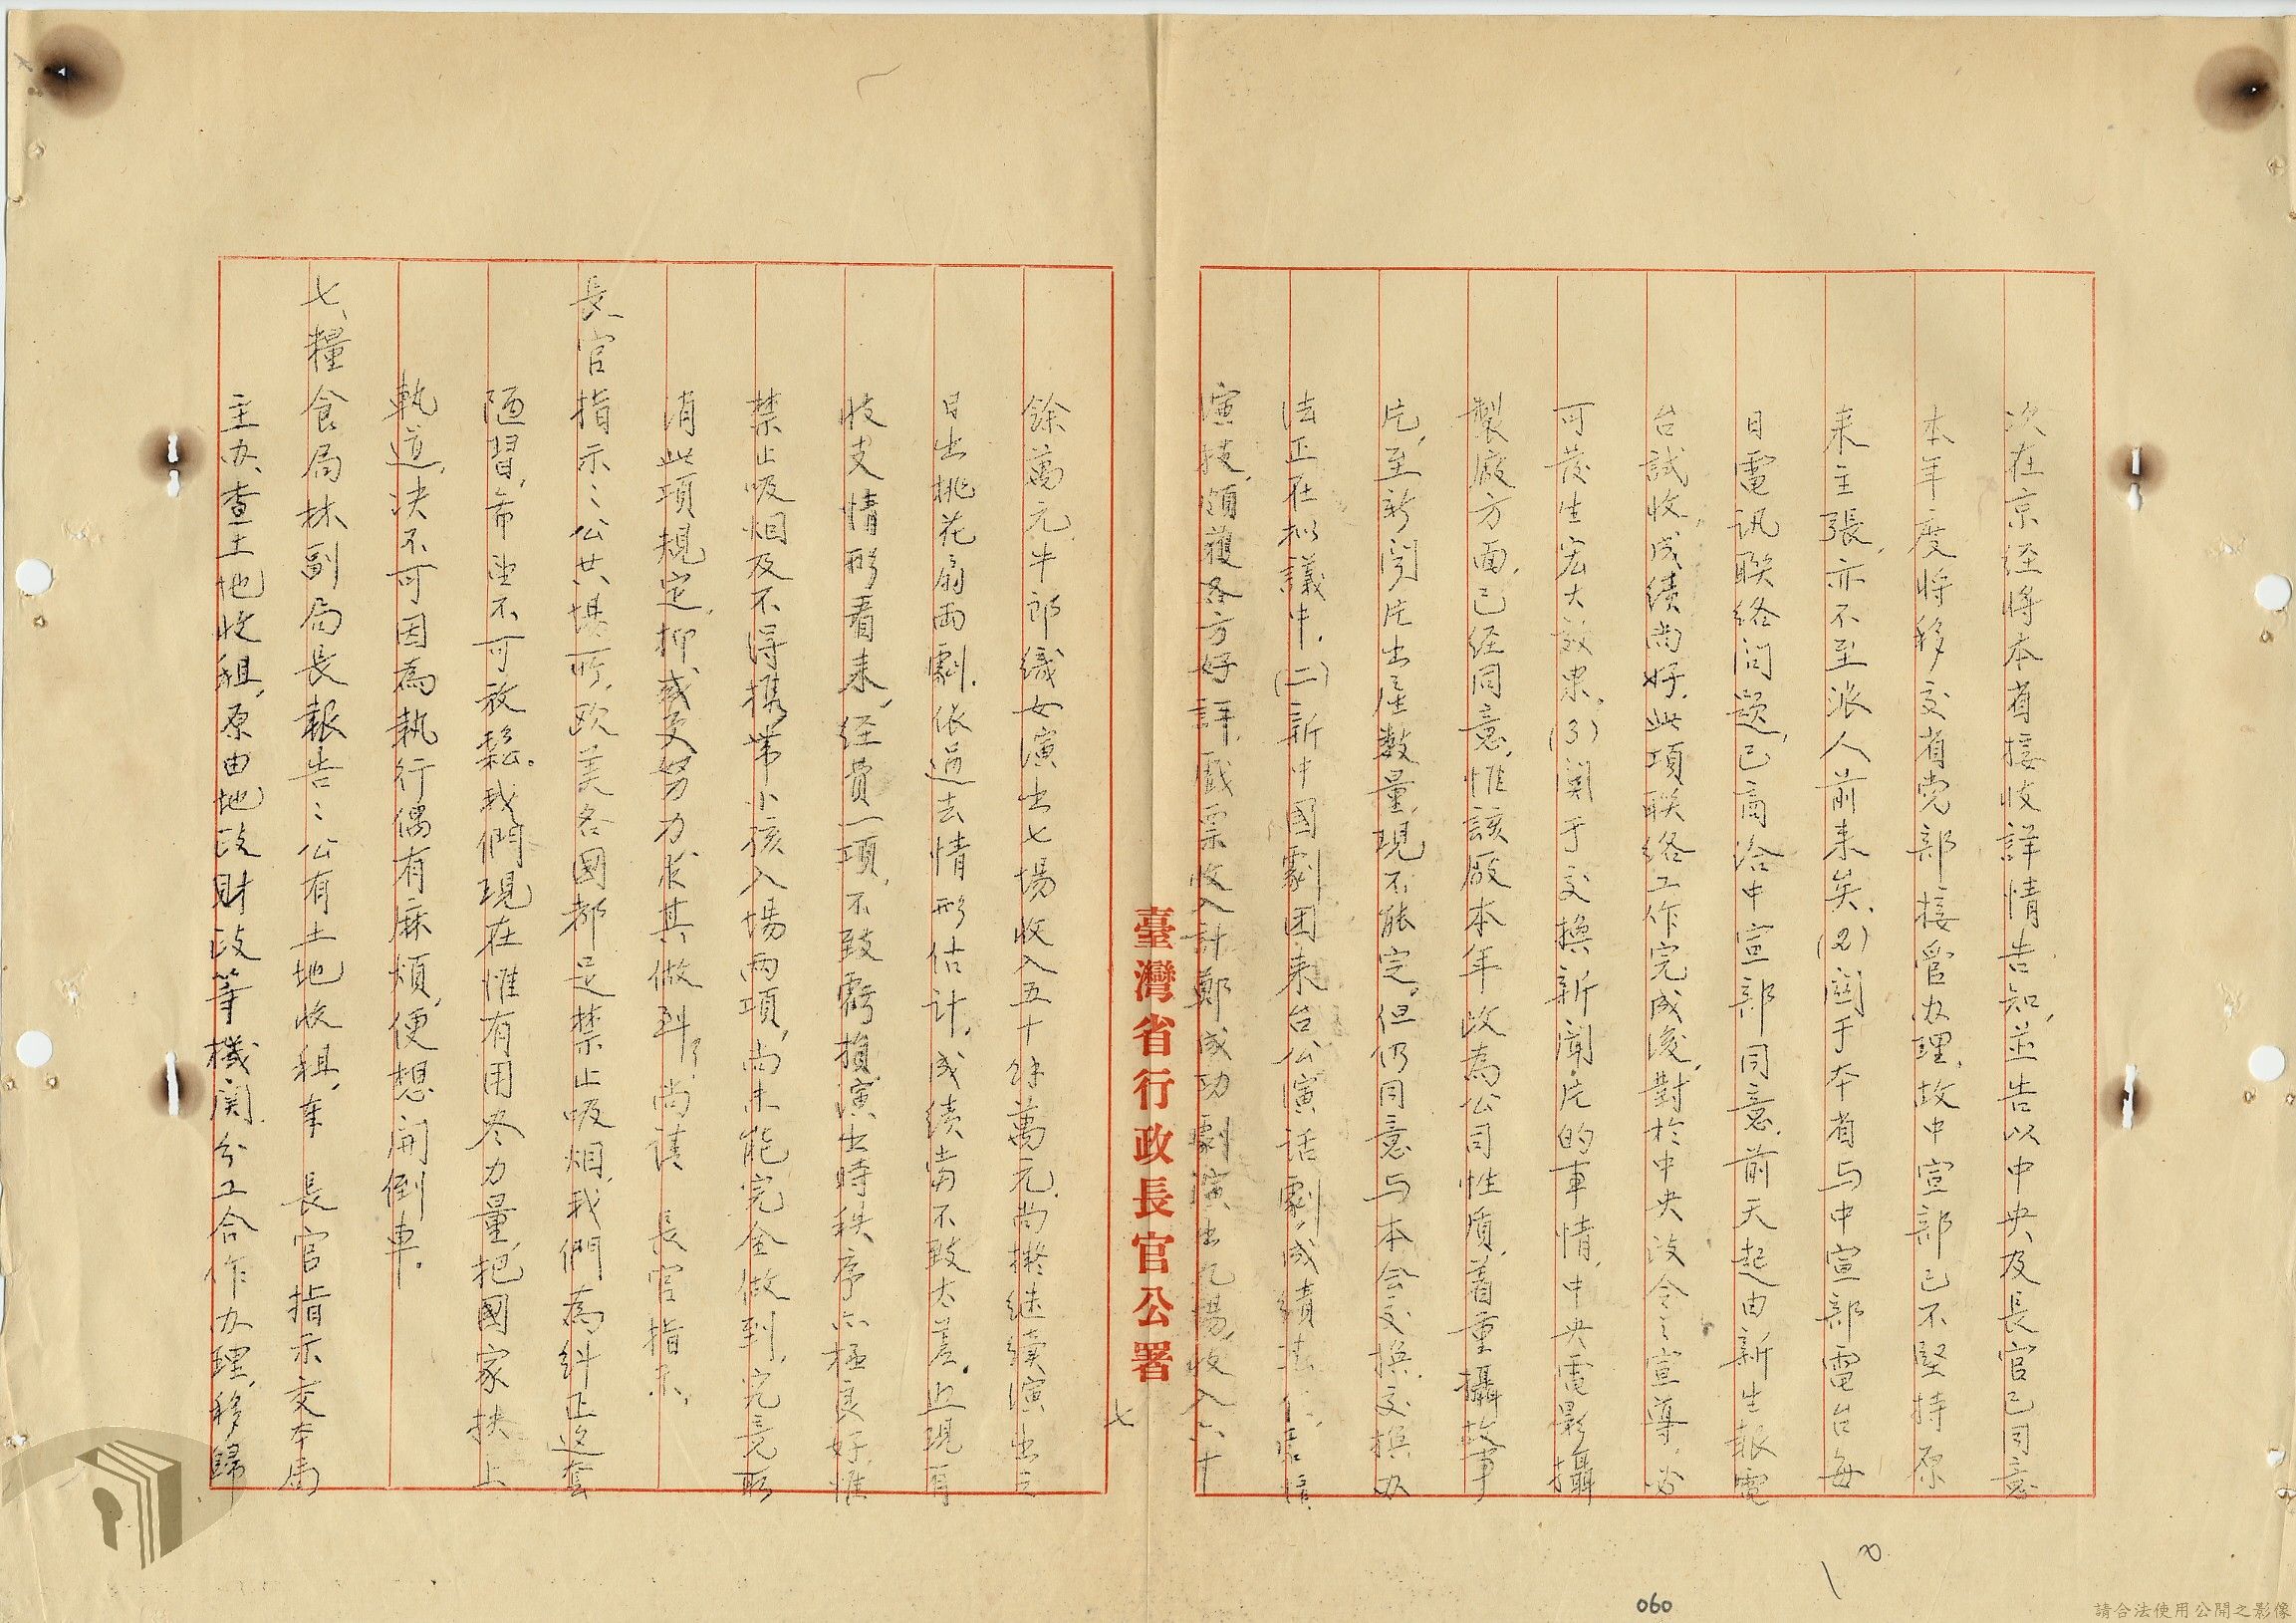 次在京经將本省接收詳情告知,並告以中央及長官已同意
本年度將移交省党部接管办理,故中宣部已不堅持原
来主張,亦不至派人前来矣.(2)関于本省与中宣部電台每
日電訊联络问题,已商洽中宣部同意,前天起由新生報電
台試收,成绩尚好,此項联络工作完成後,對於中央政令之宣導,必
可發生宏大效果,(3)関于交换新闻片的事情,中央電影攝
製廠方面,已经同意,惟該廠本年改為公司性質,着重攝故事
片,至新闻片出產数量,現不能定,但仍同意与本会交换,交换办
法正在拟議中.(二)新中國劇团来台公演话劇,成績
演技,頗獲各方好評,戲票收入計鄭成功劇演出九場,收入六十
臺灣省行政長官公署
七
餘萬元,牛郎織女演出七場收入五十餘萬元,尚擬继續演出之
日出桃花扇兩劇,依過去情形估计,成績當不致太差,照現有
收支情形看来,经費一項,不致虧損,演出時秩序亦極良好,惟
禁止吸烟及不得携带小孩入場兩項,尚未能完全做到,究竟取
消此項規定,抑或更努力求其做到,尚請 長官指示,
長官指示:公共場所,欧美各國都是禁止吸烟,我們為纠正這套
陋習,希望不可放鬆。我們現在惟有用尽力量,把國家扶上
軌道,决不可因為執行偶有麻煩,便想開倒車.
七、糧食局林副局長報告:公有土地收租,奉 長官指示交本局
主办、查土地收租,原由地政財政等機関分工合作办理,移歸
060
請合法使用公開之影像